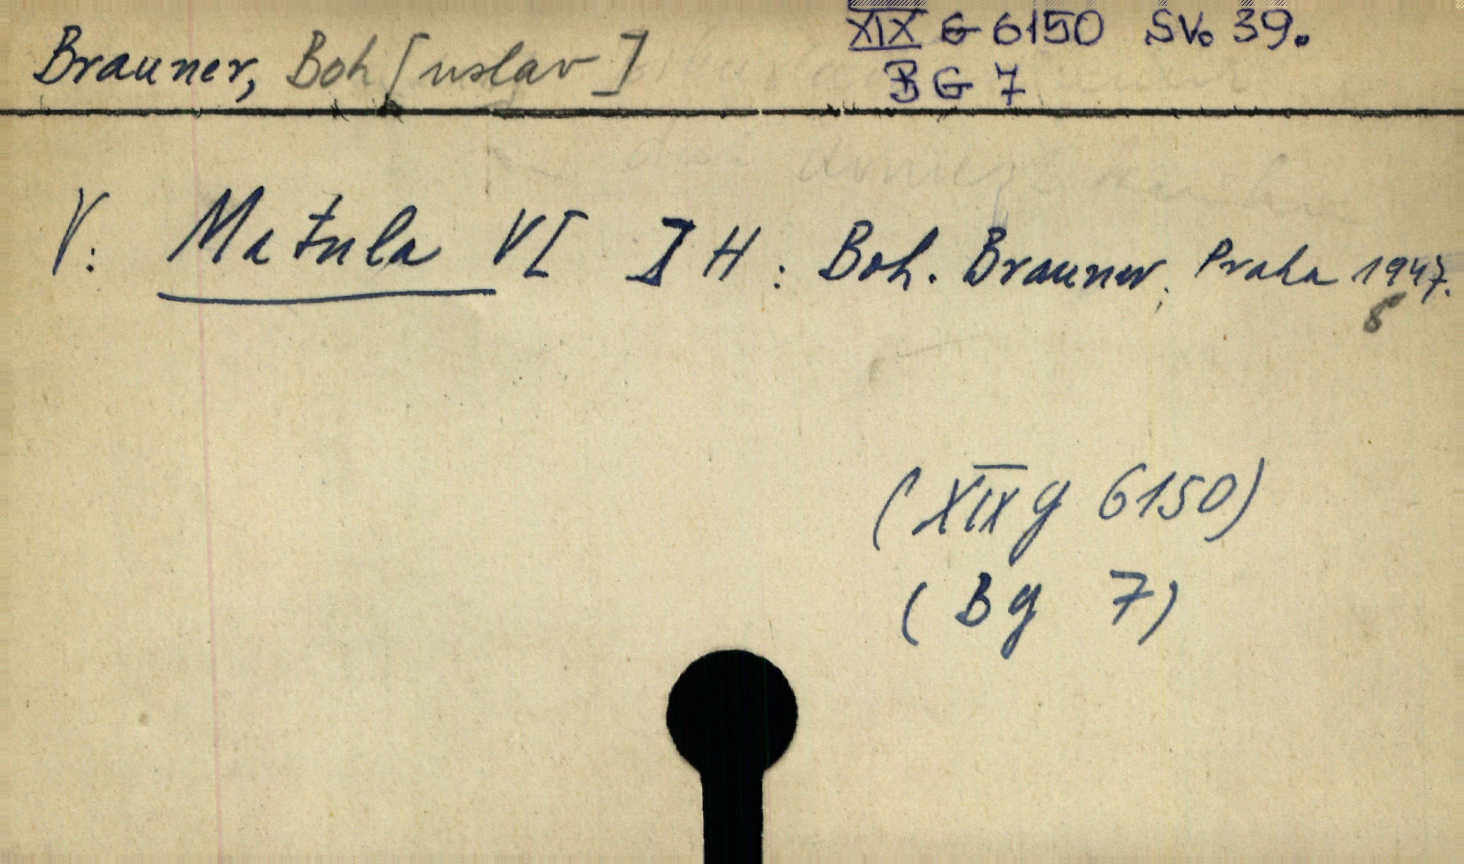 Brauner, Boh[uslav]
XIX G 6150 SV. 39.
B G 7
V: Matula VI JH: Boh. Brauner, Praha 1947.
8
(XIX g 6150)
(Bg 7)